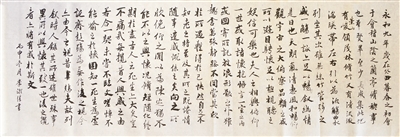 永和九年歲在癸丑暮春之初會
于會稽山陰之蘭亭脩禊事
也群賢畢至少長咸集此地
有崇山峻領茂林脩竹又有清流激
湍暎帶左右引以為流觴曲水
列坐其次雖無絲竹管弦之
盛一觴一詠亦足以暢敘幽情
是日也天朗氣清惠風和暢仰
觀宇宙之大俯察品類之盛
所以遊目騁懷足以極視聽之
娛信可樂也夫人之相與俯仰
一世或取諸懷抱悟言一室之內
或因寄所託放浪形骸之外雖
趣舍萬殊靜躁不同當其欣
於所遇暫得於己快然自足不
知老之將至及其所之既倦情
隨事遷感慨係之矣向之所
欣俛仰之間以為陳迹猶不
能不以之興懷況脩短隨化終
期於盡古人云死生亦大矣豈
不痛哉每攬昔人興感之由
若合一契未嘗不臨文嗟悼不
能喻之於懷固知一死生為虛
誕齊彭殤為妄作後之視今
亦由今之視昔悲夫故列
敘時人錄其所述雖世殊事
異所以興懷其致一也後之攬
者亦將有感於斯文